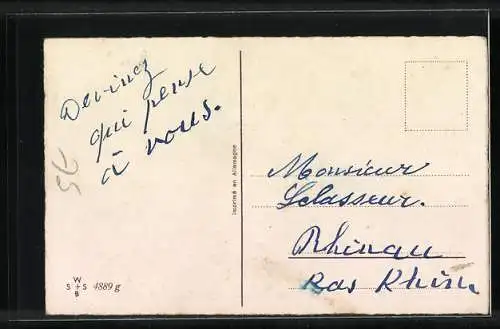 Devinez
qui pense
à vous.
75
W
S + S 4889 g
B
Imprimé en Allemagne
Monsieur
Selasseur.
Rhinau
Bas Rhin